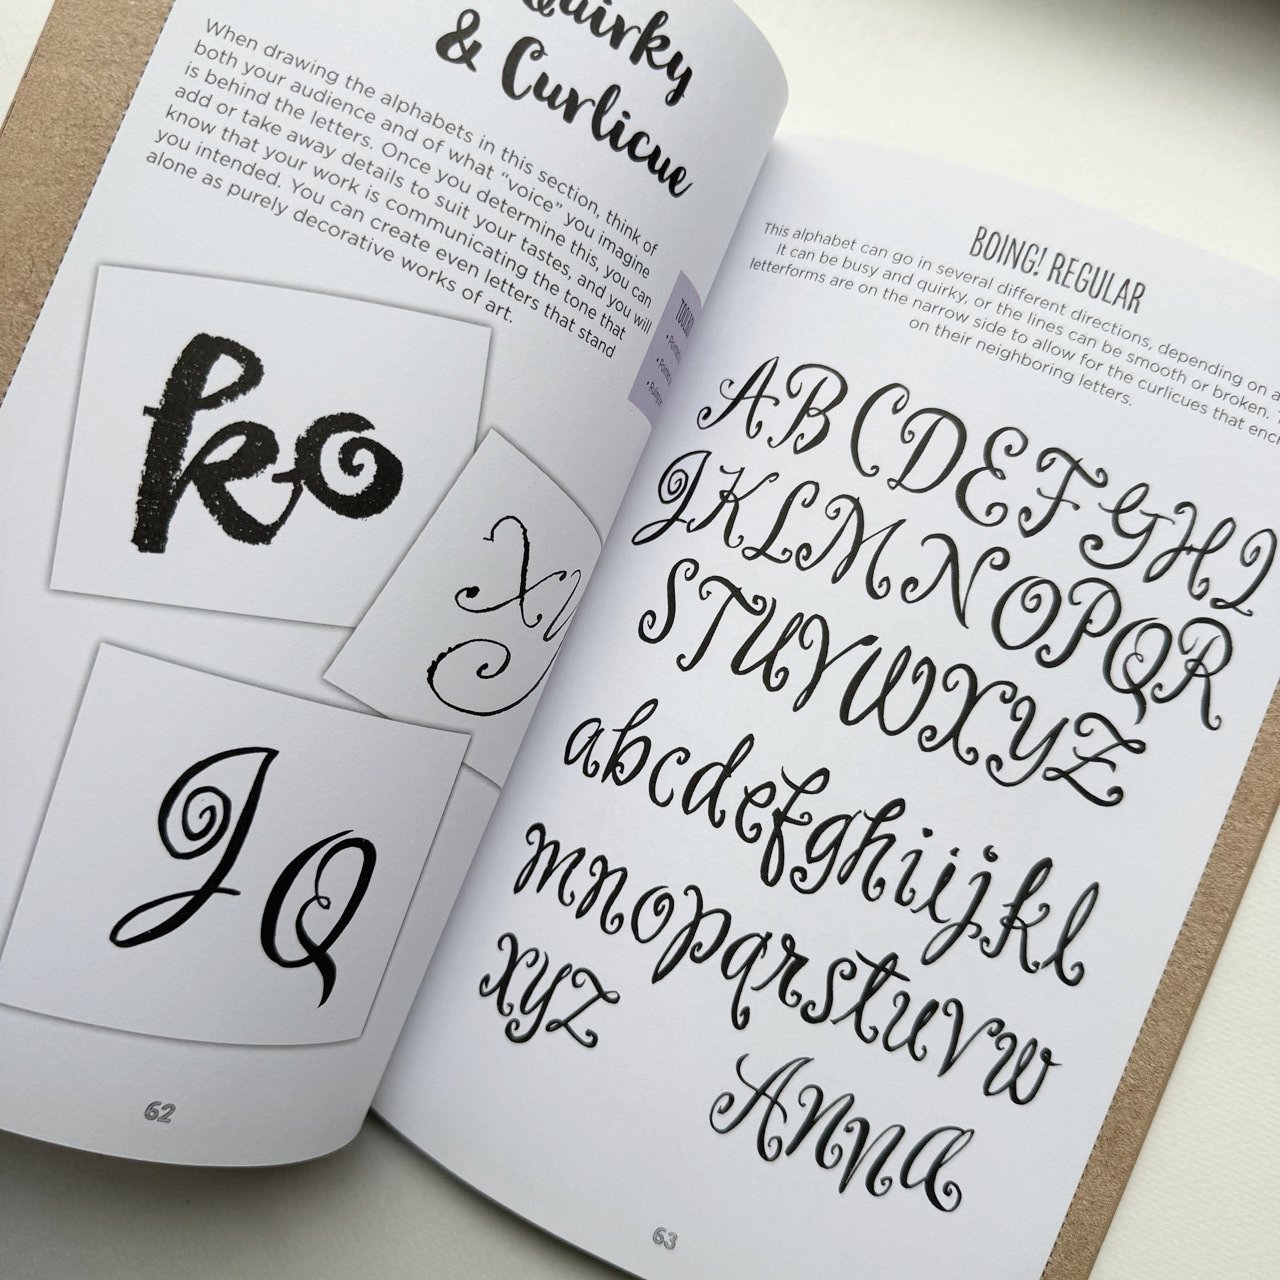 Quirky
& Curlicue
When drawing the alphabets in this section, think of
both your audience and of what “voice” you imagine
is behind the letters. Once you determine this, you can
add or take away details to suit your tastes, and you will
know that your work is communicating the tone that
you intended. You can create even letters that stand
alone as purely decorative works of art.
ko
J Q
62
BOING! REGULAR
This alphabet can go in several different directions, depending on
It can be busy and quirky, or the lines can be smooth or broken.
letterforms are on the narrow side to allow for the curlicues that
on their neighboring letters.
A B C D E F G H I
J K L M N O P Q R
S T U V W X Y Z
a b c d e f g h i j k l
m n o p q r s t u v w
x y z
Anna
63